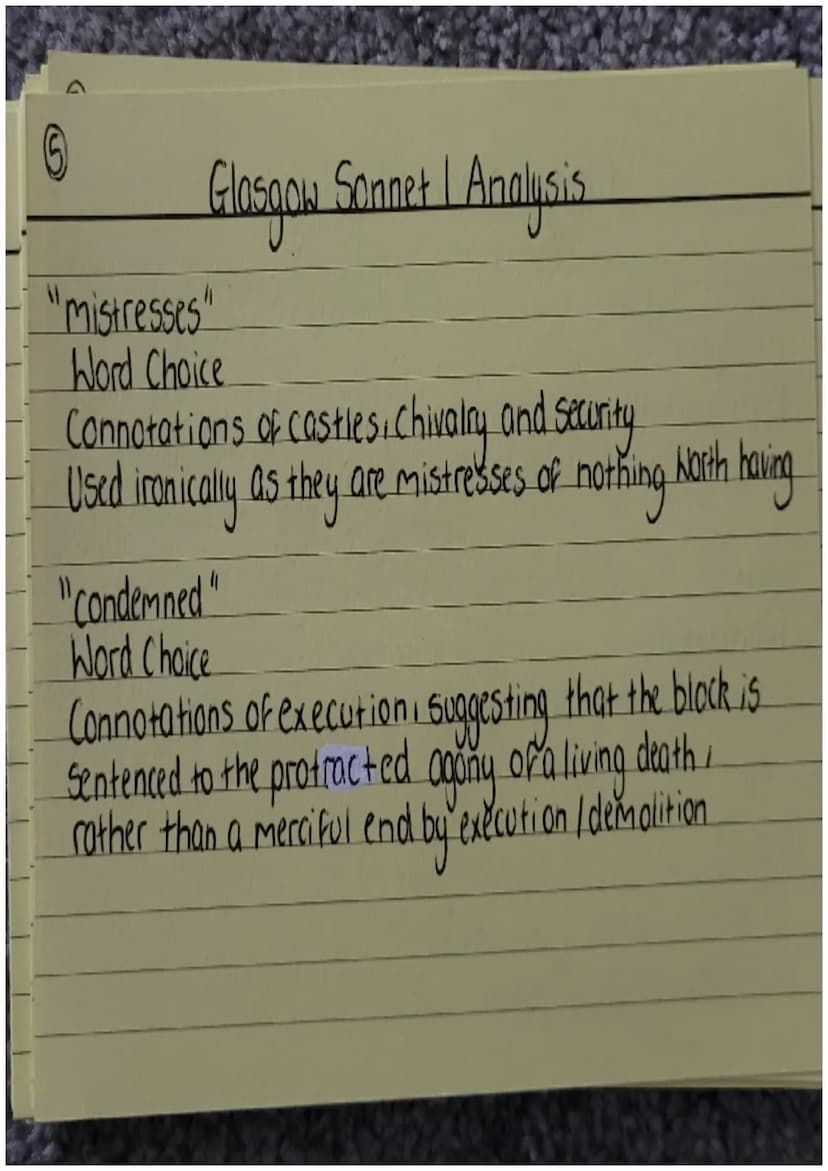 5
Glasgow Sonnet 1 Analysis
"mistresses"
Word Choice
Connotations of castles, chivalry and security
Used ironically as they are mistresses of nothing worth having
"condemned"
Word Choice
Connotations of execution, suggesting that the block is
sentenced to the protracted agony of a living death,
rather than a merciful end by execution/demolition